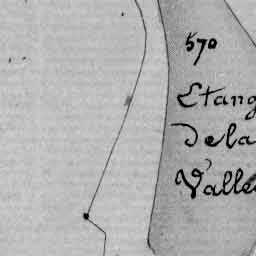 570
Etang
De la
Vallée